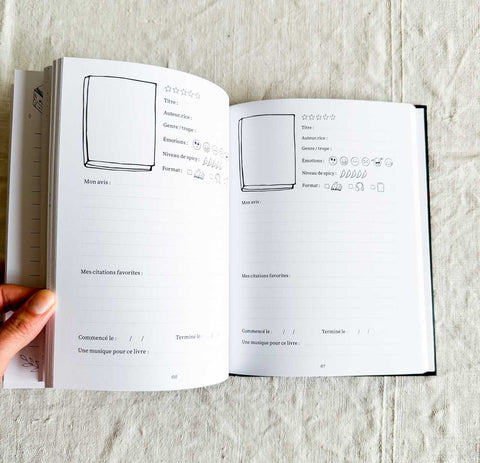 Titre :
Auteur.rice :
Genre / trope :
Emotions :
Niveau de spicy :
Format :
Mon avis :
Mes citations favorites :
Commencé le : / / Terminé le : / /
Une musique pour ce livre :
Titre :
Auteur.rice :
Genre / trope :
Emotions :
Niveau de spicy :
Format :
Mon avis :
Mes citations favorites :
Commencé le : / / Terminé le : / /
Une musique pour ce livre :
67